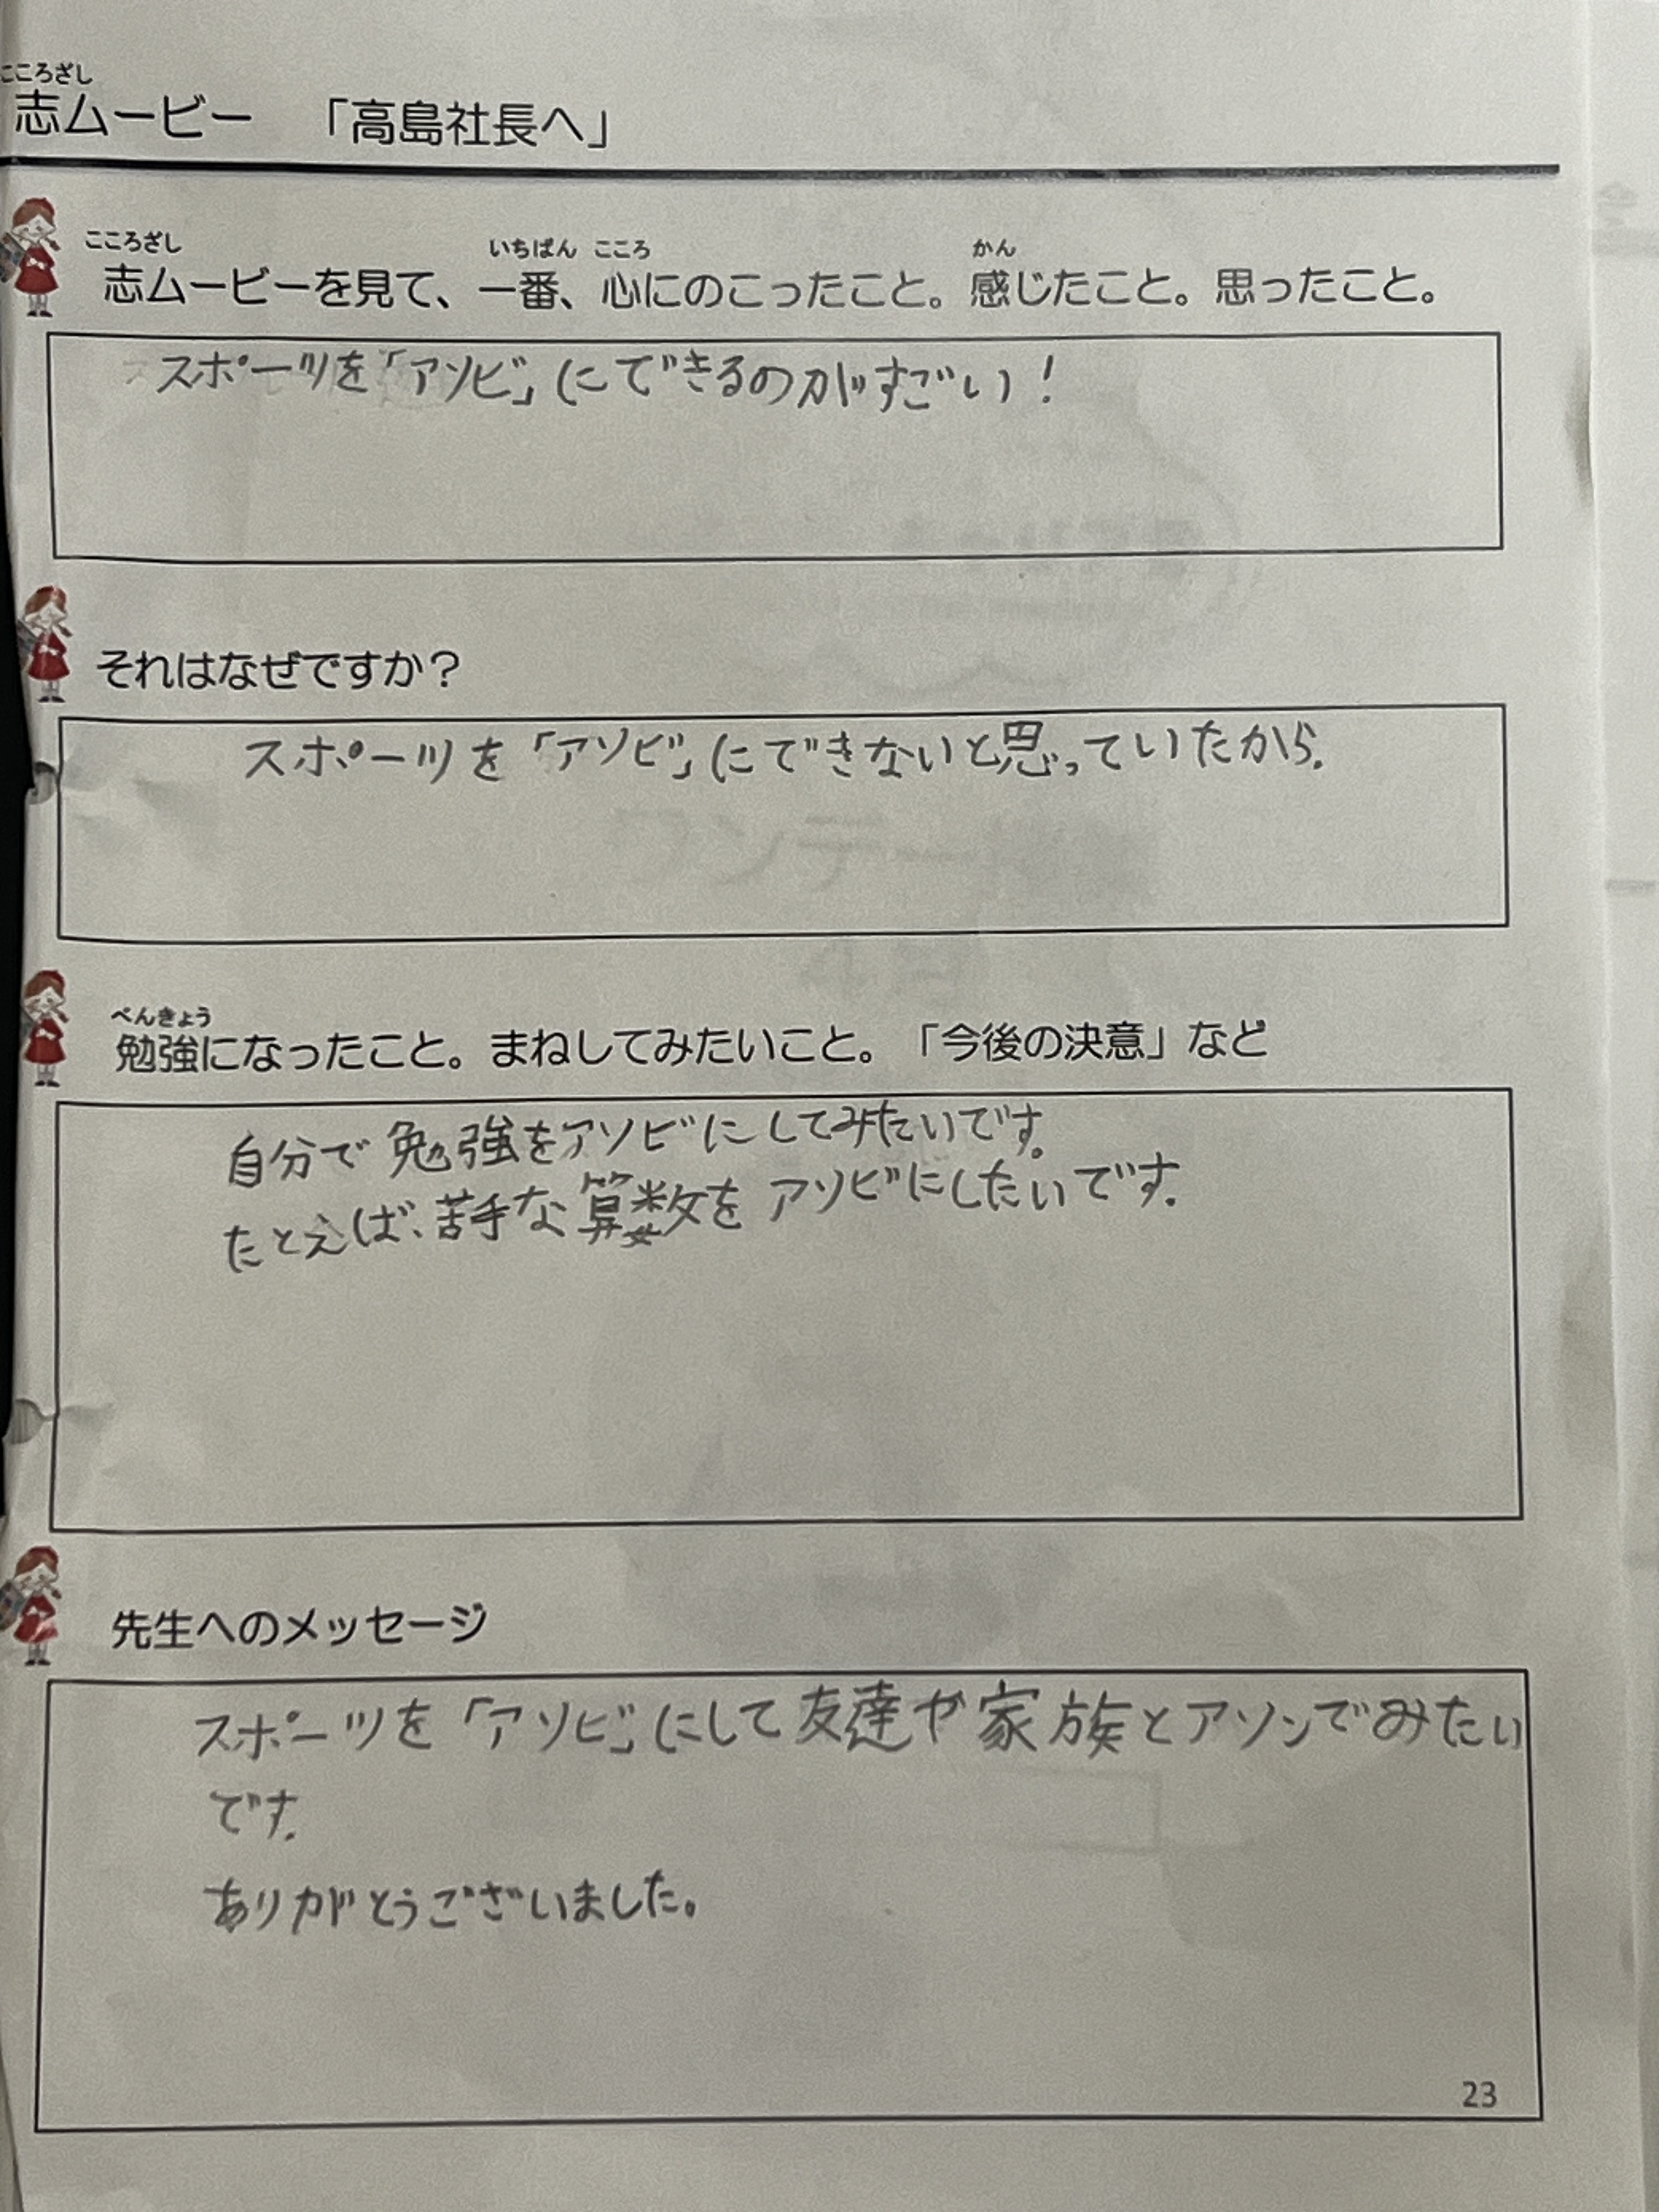 こころざし
志ムービー 「高島社長へ」
こころざし いちばん こころ かん
志ムービーを見て、一番、心にのこったこと。感じたこと。思ったこと。
スポーツを「アソビ」にできるのがすごい!
それはなぜですか?
スポーツを「アソビ」にできないと思っていたから.
べんきょう
勉強になったこと。まねしてみたいこと。「今後の決意」など
自分で勉強をアソビにしてみたいです。
たとえば、苦手な算数をアソビにしたいです.
先生へのメッセージ
スポーツを「アソビ」にして友達や家族とアソンでみたい
です.
ありがとうございました。
23